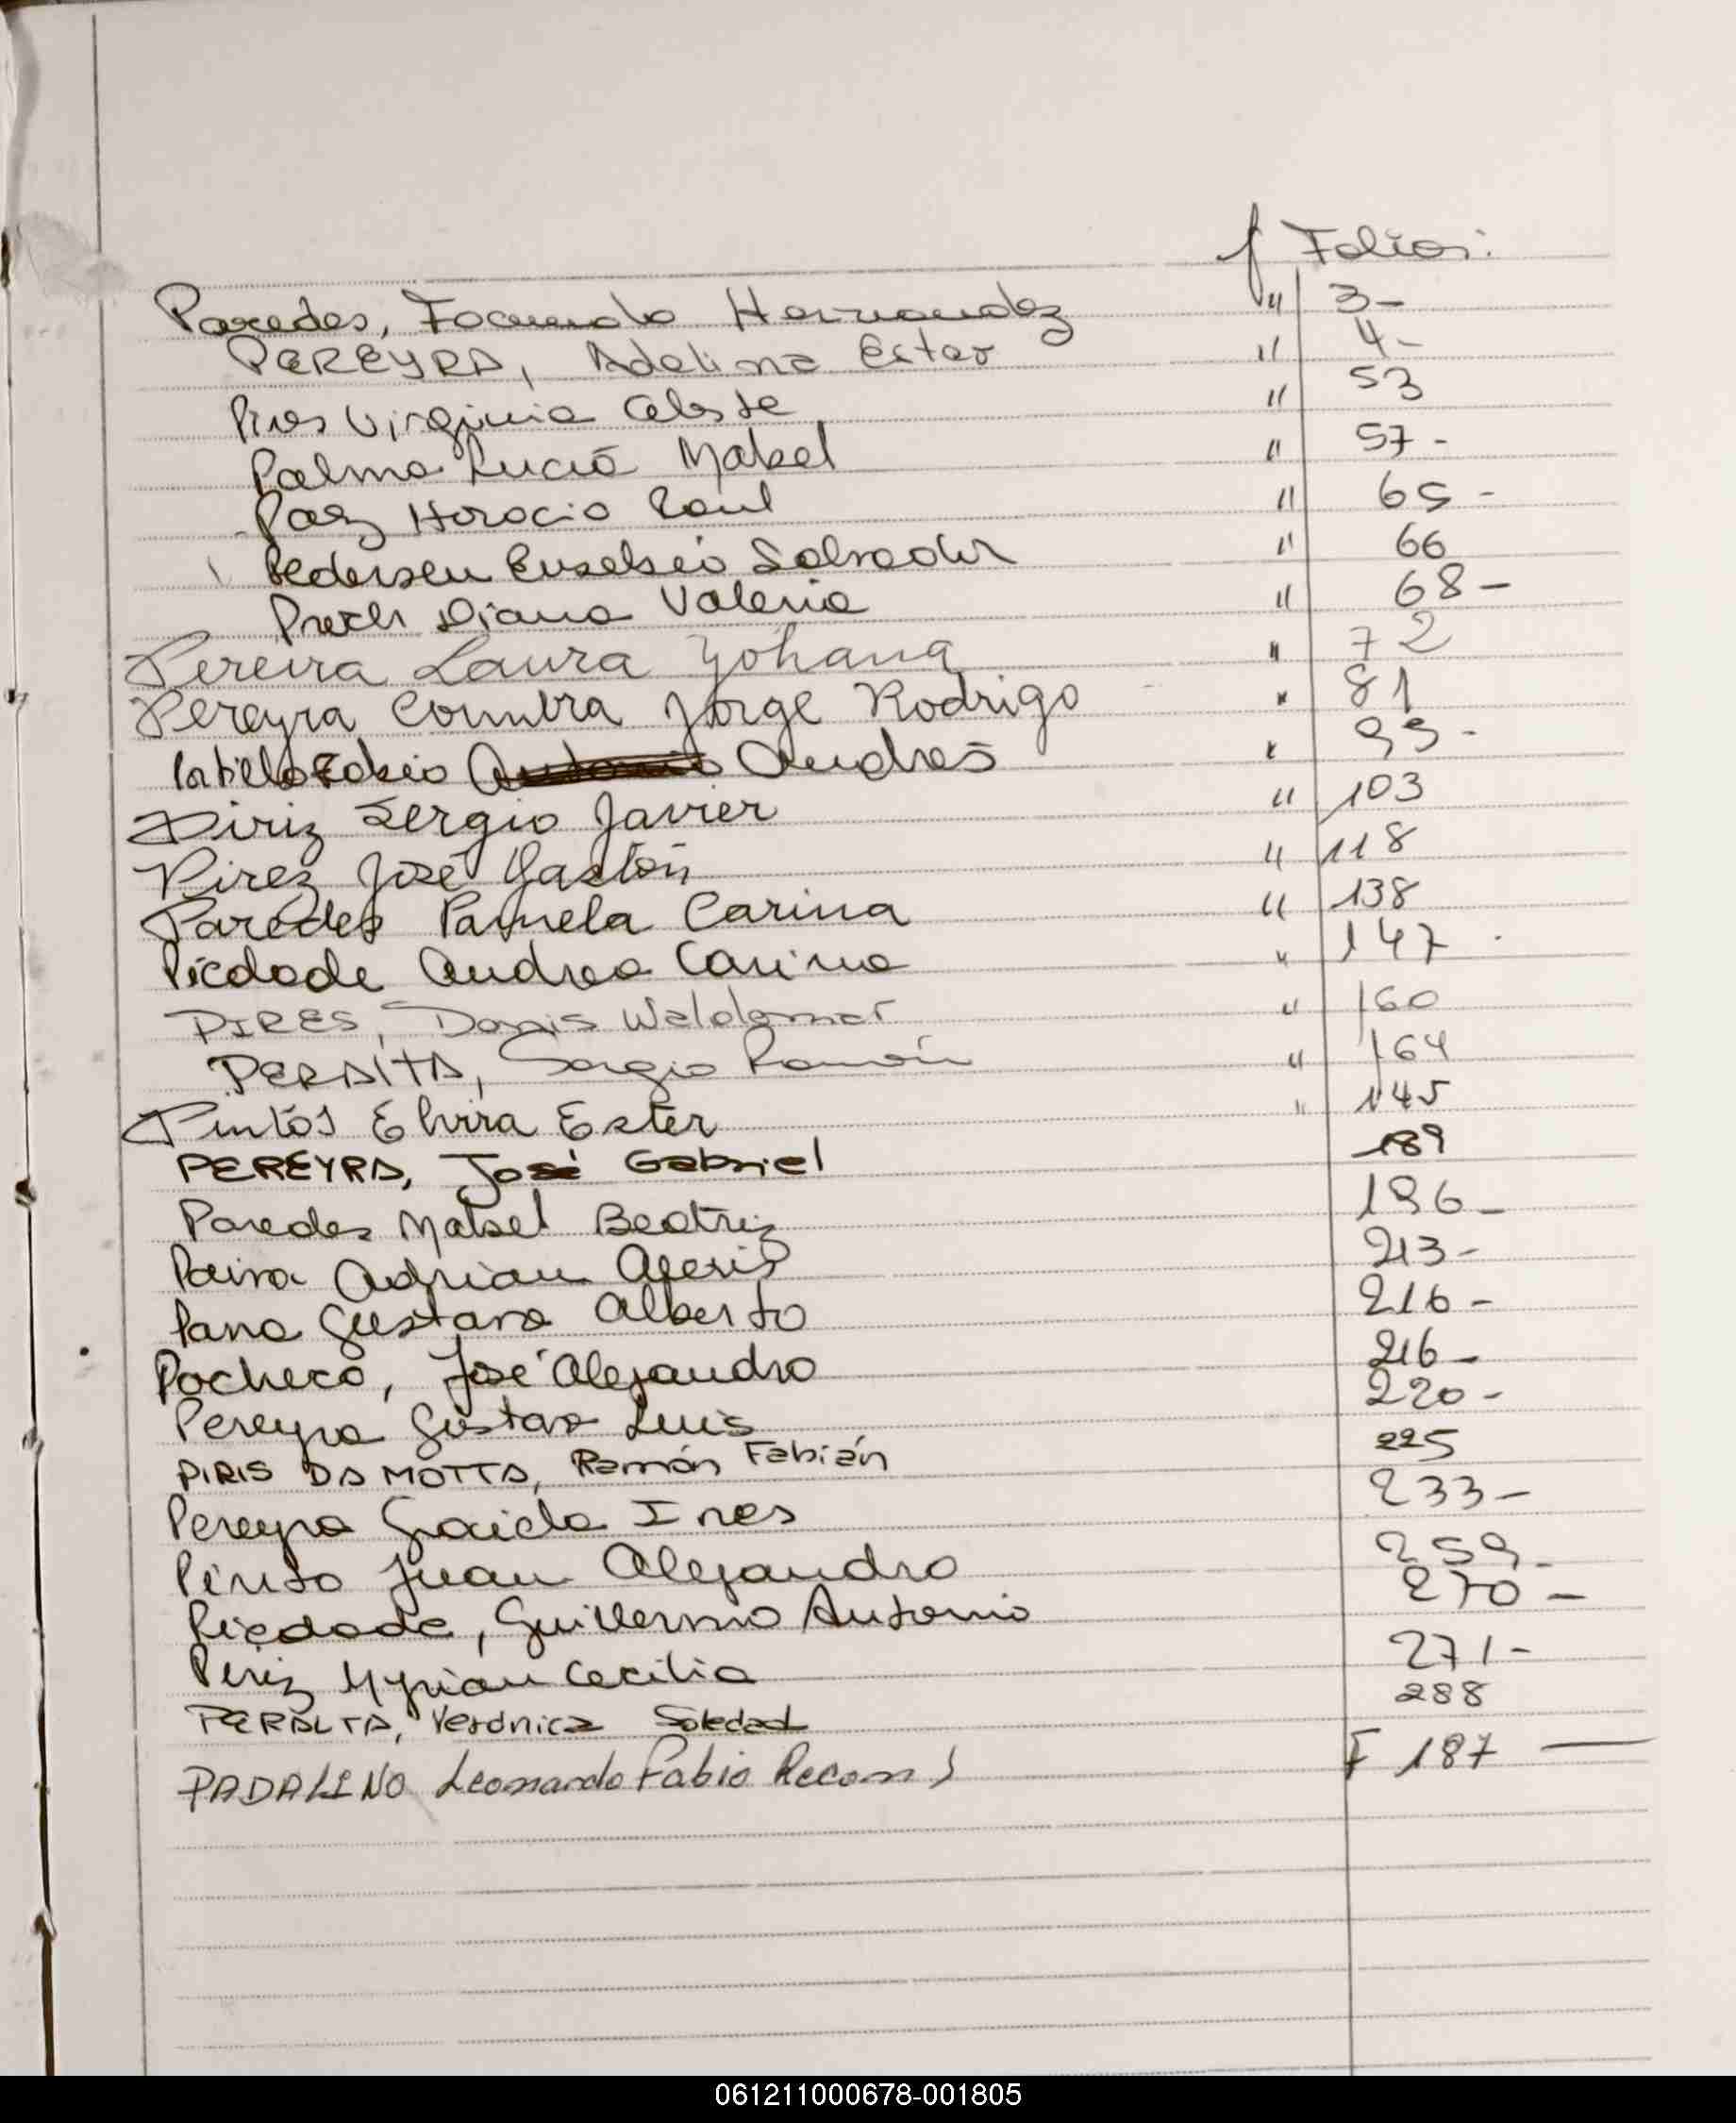 f Folios:
Paredes, Facundo Hernandez " 3-
PEREYRA, Adelina Ester " 4-
Pires Virginia Celeste " 53
Palma Lucia Mabel " 57-
Paez Horacio Raul " 65-
Pedersen Eusebeio Salvador " 66
Diana Valeria " 68-
Pereira Laura Yohana " 72
Pereyra Coimbra Jorge Rodrigo " 81
Portillo Fabio Andrés " 99-
Piriz Sergio Javier " 103
Pirez José Gastón " 118
Paredes Pamela Carina " 138
Piedade Andrea Carina " 147
PIRES, Denis Waldemar " 160
PERALTA, Sergio Ramón " 164
Pintos Elvira Ester " 145
PEREYRA, José Gabriel 189
Paredes Mabel Beatriz 196-
Paiva Adrian Alexis 213-
Gustavo Alberto 216-
Pacheco, José Alejandro 216-
Pereyra Gustavo Luis 220-
PIRIS DA MOTTA, Ramón Fabián 225
Pereyra Graciela Ines 233-
Pinto Juan Alejandro 259-
Piedade, Guillermo Antonio 270-
Periz Myrian Cecilia 271-
PERALTA, Verónica Soledad 288
PADALINO Leonardo Fabio F 187
061211000678-001805